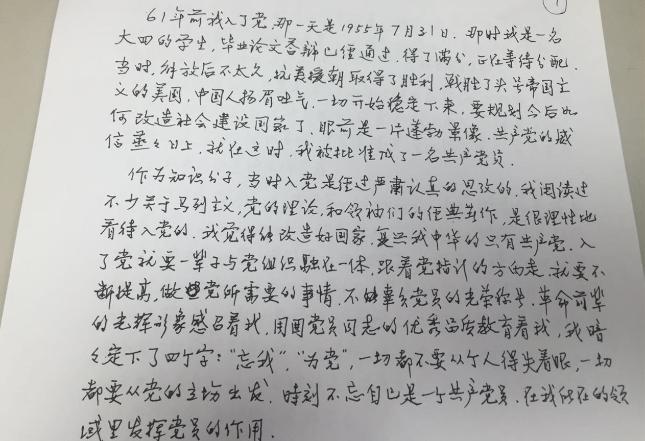 1
61年前我入了党,那一天是1955年7月31日.那时我是一名
大四的学生,毕业论文答辩已经通过,得了满分,正在等待分配.
当时,解放后不太久,抗美援朝取得了胜利,战胜了头号帝国主
义的美国,中国人扬眉吐气,一切开始稳定下来,要规划今后如
何改造社会建设国家了.眼前是一片蓬勃景像.共产党的威
信蒸々日上,就在这时,我被批准成了一名共产党员.
作为知识分子,当时入党是经过严肃认真的思考的,我阅读过
不少关于马列主义,党的理论,和领袖们的经典著作,是很理性地
看待入党的.我觉得能改造好国家,复兴我中华的只有共产党.入
了党就要一辈子与党组织融在一体,跟着党指引的方向走,就要不
断提高,做些党所需要的事情.不能辜负党员的光荣称号,革命前辈
的光辉形象感召着我,周围党员同志的优秀品质教育着我,我暗
々定下了四个字:“忘我”,“为党”,一切都不要从个人得失着眼,一切
都要从党的立场出发.时刻不忘自己是一个共产党员.在我所在的领
域里发挥党员的作用.